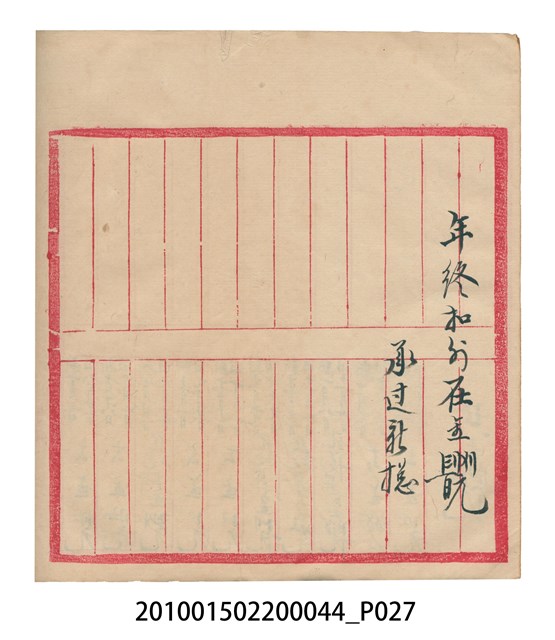 年终扣外在五
承过新总
201001502200044_P027